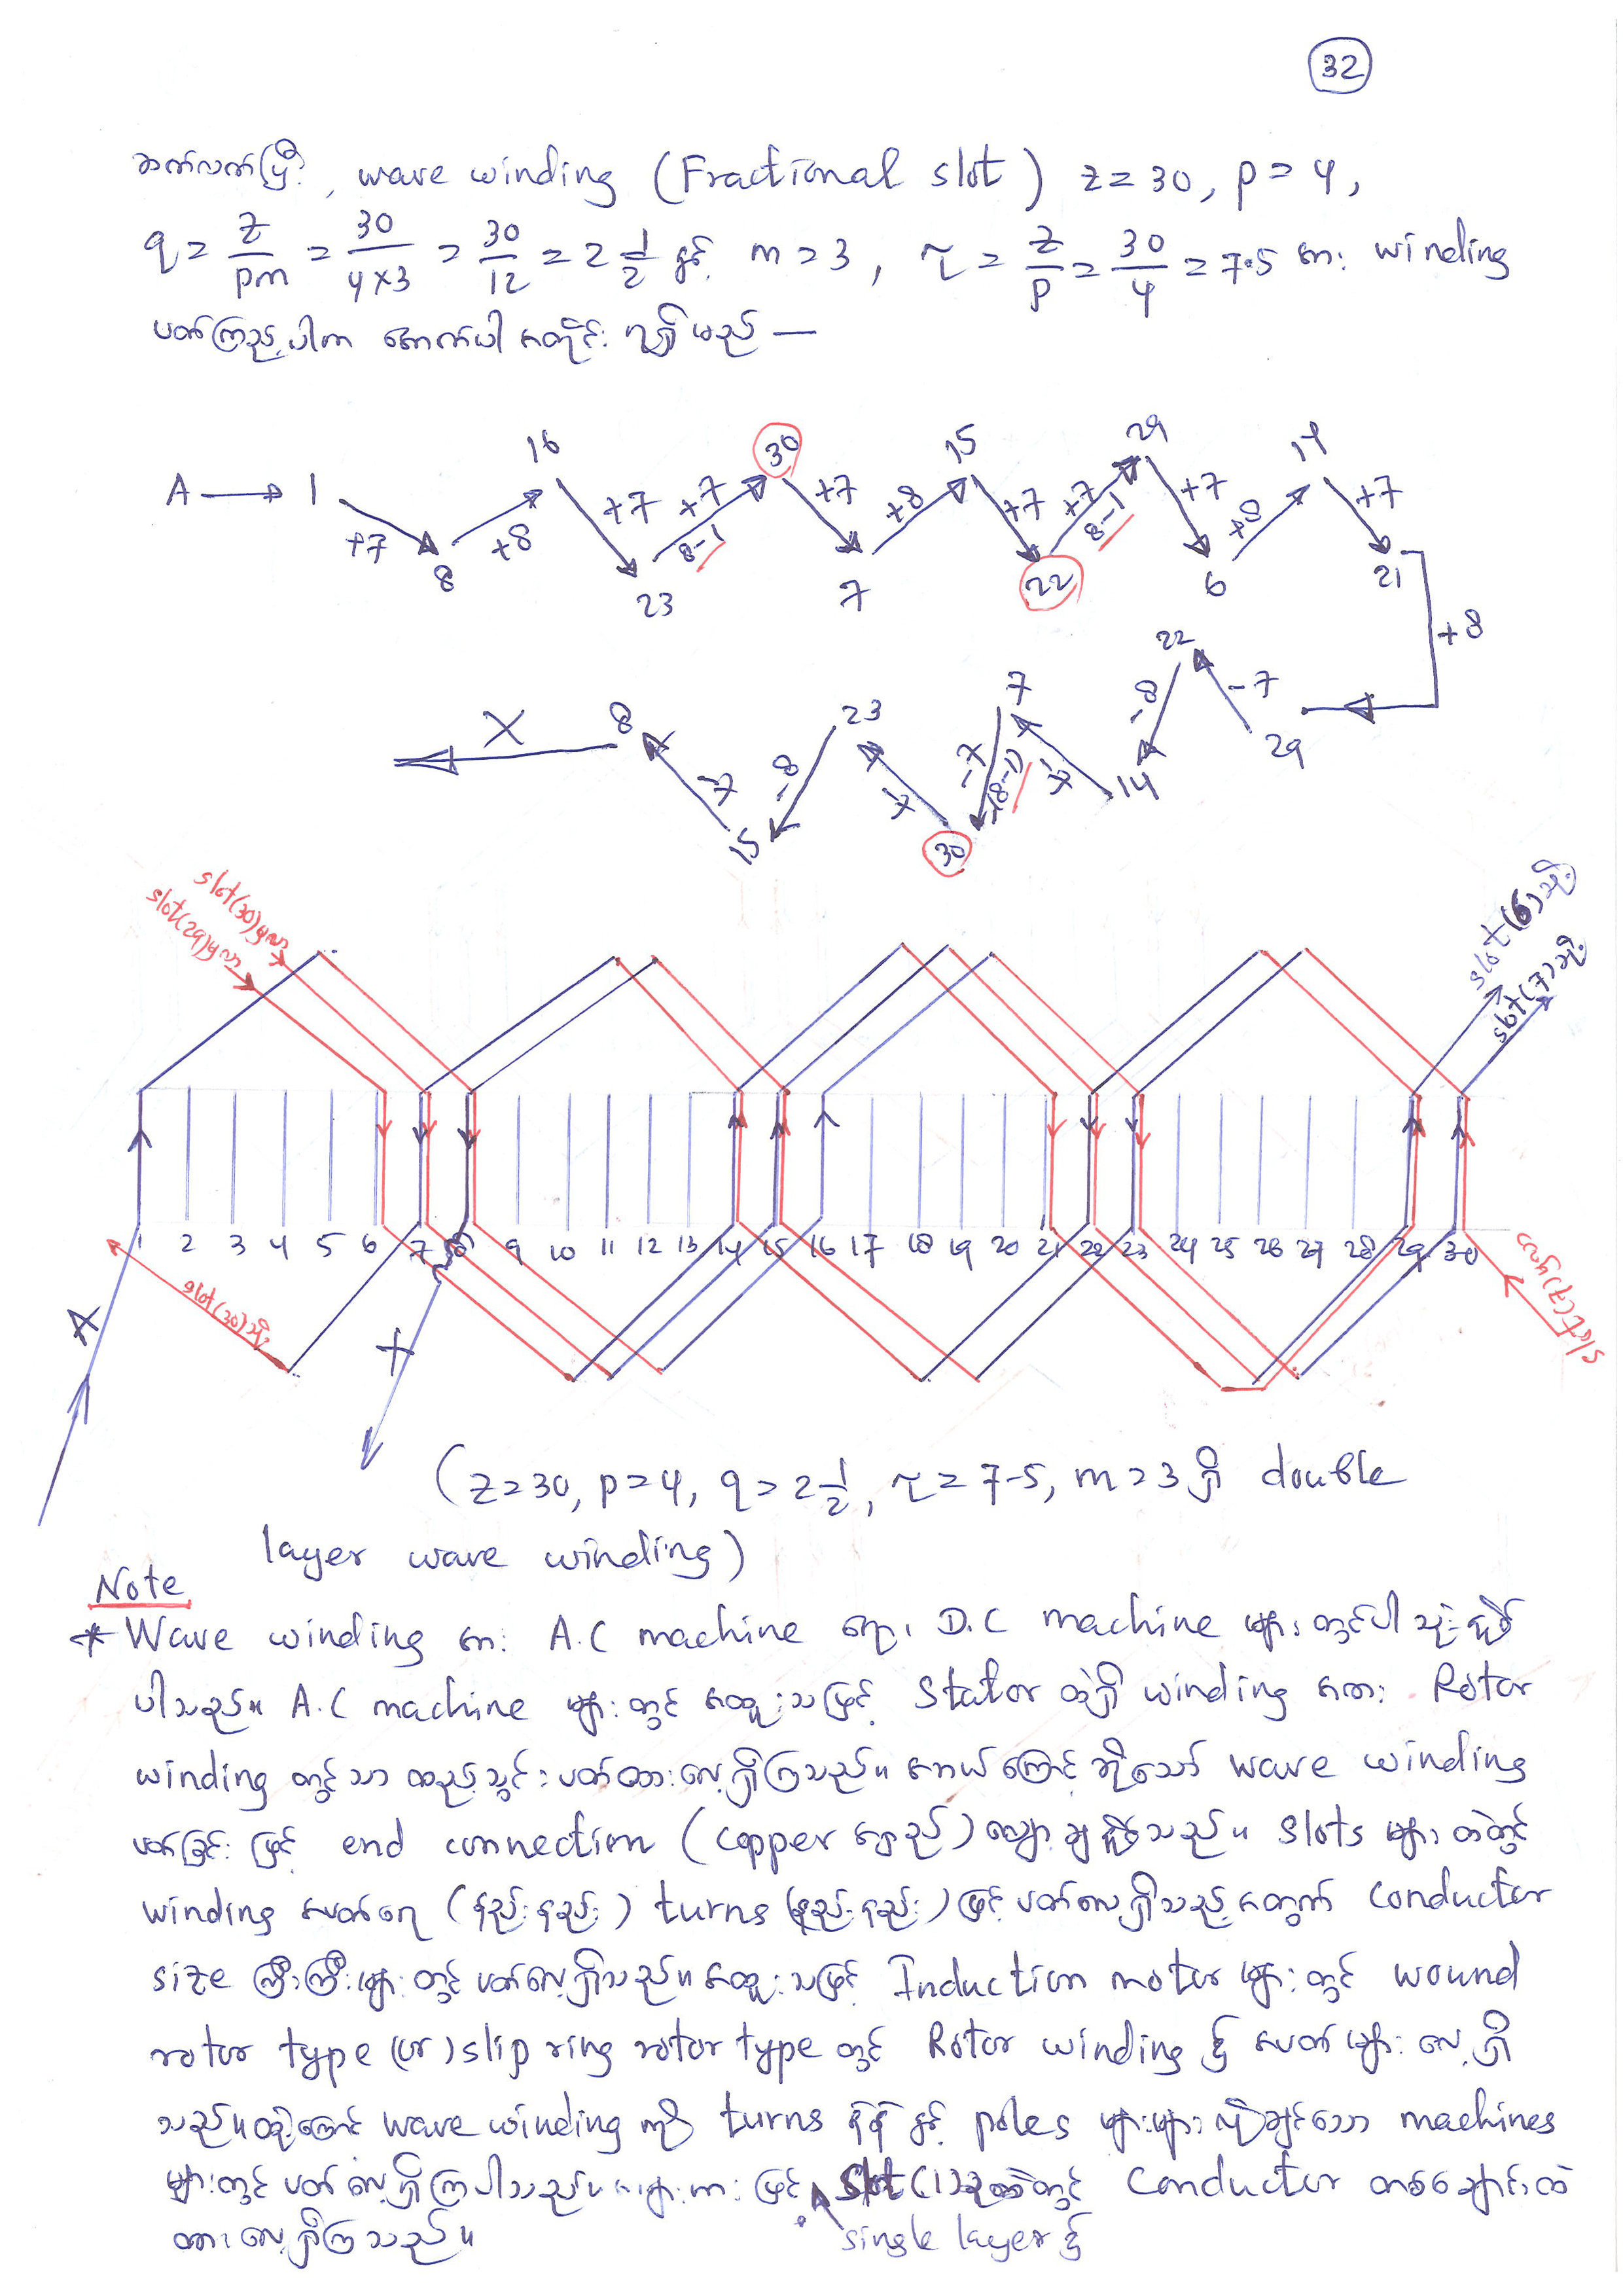 32
ဆက်လက်ပြီး, wave winding (Fractional slot) z=30, p=4,
q = z/pm = 30/4×3 = 30/12 = 2 1/2 နှင့် m=3, τ = z/p = 30/4 = 7.5 အား winding
ပတ်ကြည့်ပါက အောက်ပါအတိုင်း ရရှိမည် —
A → 1 +7 8 +8 16 +7 23 +7 8-1 30 +7 7 +8 15 +7 22 +7 8-1 29 +7 6 +8 14 +7 21
+8
29 -7 22 -8 14 -7 7 -7 -(8-1) 30 -7 23 -8 15 -7 8 X
slot(30)မှလာ
slot(29)မှလာ
slot(6)သို့
slot(7)သို့
1 2 3 4 5 6 7 8 9 10 11 12 13 14 15 16 17 18 19 20 21 22 23 24 25 26 27 28 29 30
A
slot(30)သို့
X
slot(7)မှလာ
(z=30, p=4, q=2 1/2, τ=7.5, m=3 ရှိ double
layer wave winding)
Note
* Wave winding အား A.C machine ရော၊ D.C machine များတွင်ပါ သုံးနိုင်
ပါသည်။ A.C machine များတွင် အထူးသဖြင့် Stator ထဲရှိ winding ထား Rotor
winding တွင်သာ ထည့်သွင်းပတ်ထားလေ့ရှိကြသည်။ အဘယ်ကြောင့်ဆိုသော် wave winding
ပတ်ခြင်းဖြင့် end connection (copper ရှေည်) လျှော့ချနိုင်သည်။ Slots များထဲတွင်
winding အပတ်ရေ (နည်းနည်း) turns (နည်းနည်း) ဖြင့် ပတ်လေ့ရှိသည့်အတွက် Conductor
size ကြီးကြီးများတွင် ပတ်လေ့ရှိသည်။ အထူးသဖြင့် Induction motor များတွင် wound
rotor type (or) slip ring rotor type တွင် Rotor winding ၌ အပတ်များလေ့ရှိ
သည်။ ထို့ကြောင့် wave winding ကို turns နှင့် poles များများလိုချင်သော machines
များတွင် ပတ်လေ့ရှိကြပါသည်။ အများအားဖြင့် Slot (1) ခုထဲတွင် Conductor တစ်ချောင်းထဲ
ထားလေ့ရှိကြသည်။
single layer ၌